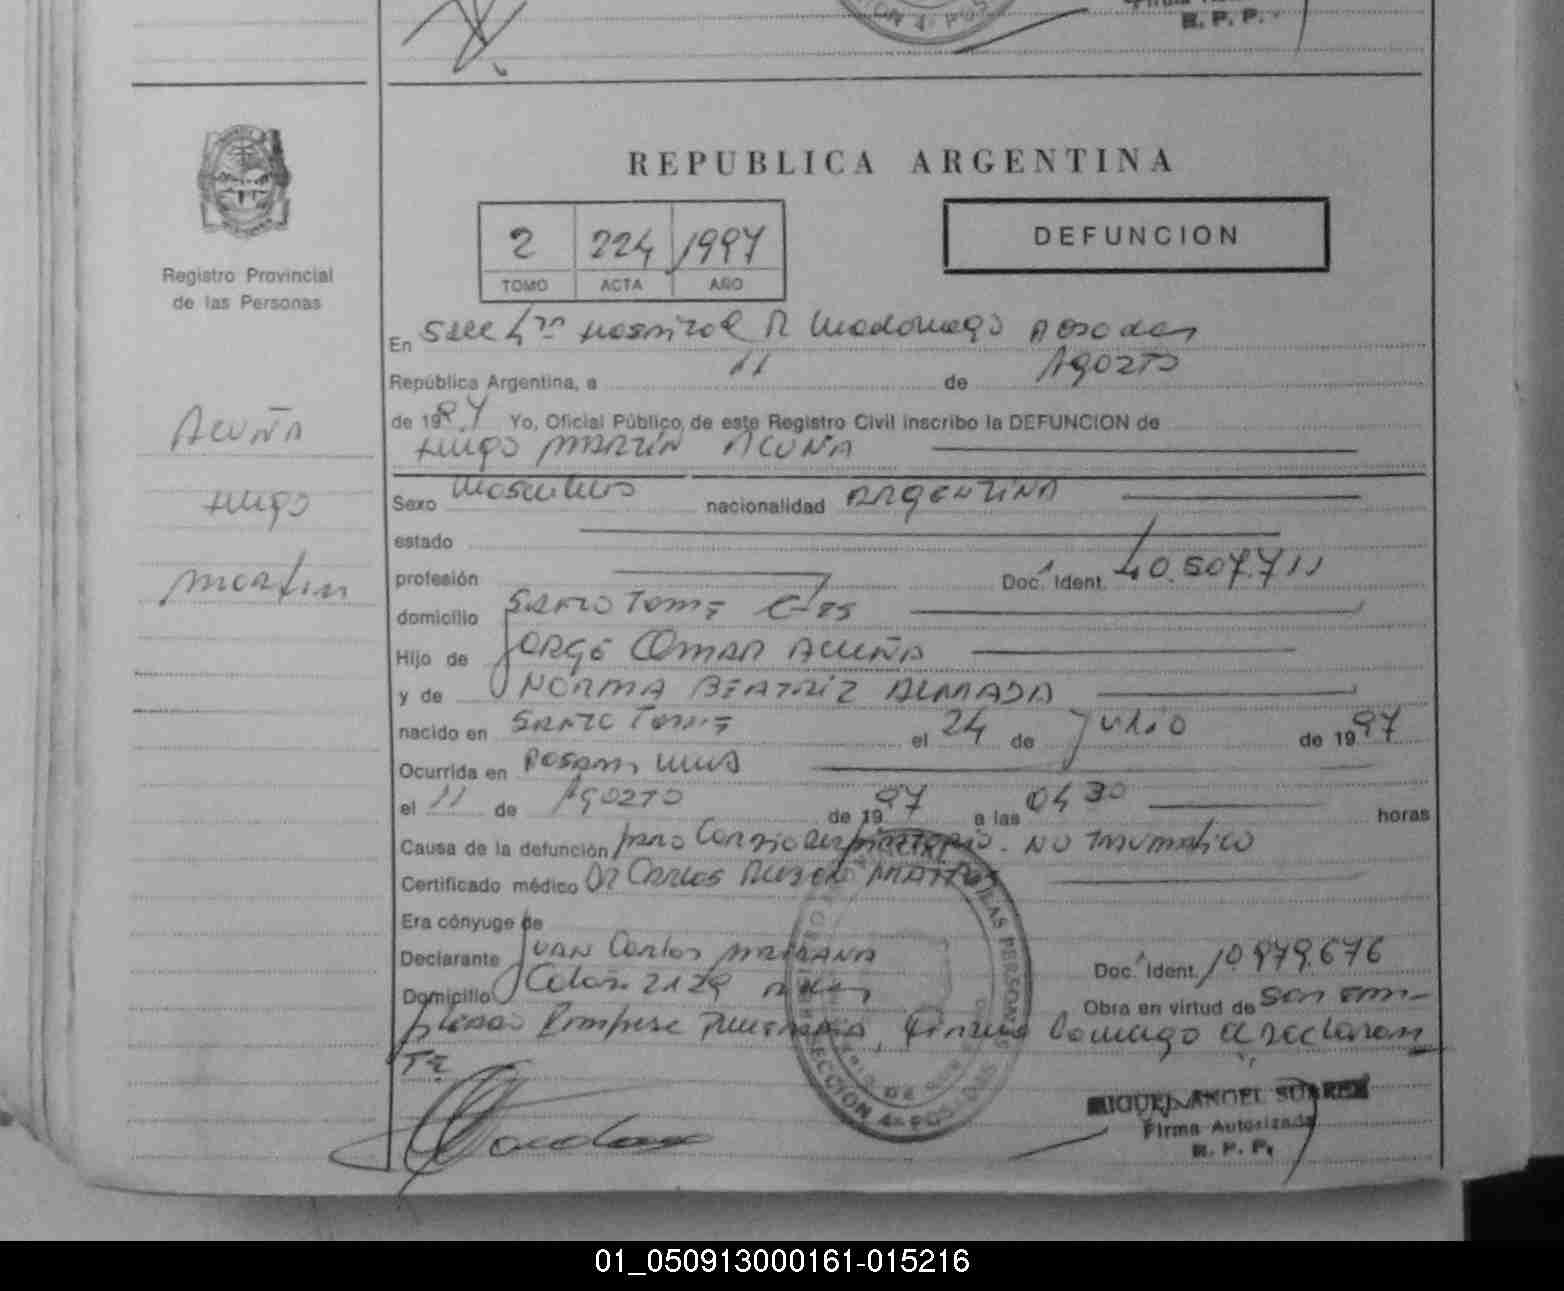 R. P. P.
REPUBLICA ARGENTINA
2 224 1997
TOMO ACTA AÑO
DEFUNCION
Registro Provincial
de las Personas
Acuña
Hugo
Martin
En Secc 4ta Hospital R Madariaga Posadas
República Argentina, a 11 de Agozto
de 1997 Yo, Oficial Público, de este Registro Civil inscribo la DEFUNCION de
Hugo MARTIN ACUÑA
Sexo Masculino nacionalidad ARGENTINA
estado
profesión Doc. Ident. 40.507.711
domicilio SANTO TOME C-TES
Hijo de JORGE OMAR ACUÑA
y de NORMA BEATRIZ ALMADA
nacido en SANTO TOME el 24 de JULIO de 1997
Ocurrida en Posadas Mnes
el 11 de Agozto de 1997 a las 04 30 horas
Causa de la defunción paro Cardiorespiratorio. NO TRAUMATICO
Certificado médico Dr CARLOS
Era cónyuge de
Declarante JUAN Carlos Doc. Ident. 10.979.676
Domicilio Colon 2129 Obra en virtud de ser em-
pleado Empresa Funeraria, firma Conmigo el Declaran
TE
SECCION 4a POSADAS
MIGUEL ANGEL SUAREZ
Firma Autorizada
R. P. P.
01_050913000161-015216